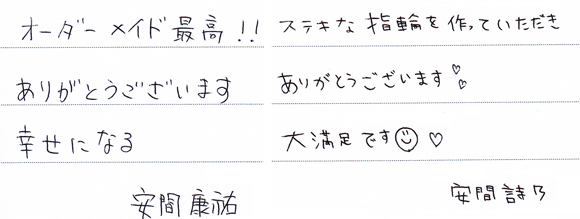 オーダーメイド最高!!
ありがとうございます
幸せになる
安間 康祐
ステキな指輪を作っていただき
ありがとうございます♡♡
大満足です☺♡
安間 詩乃